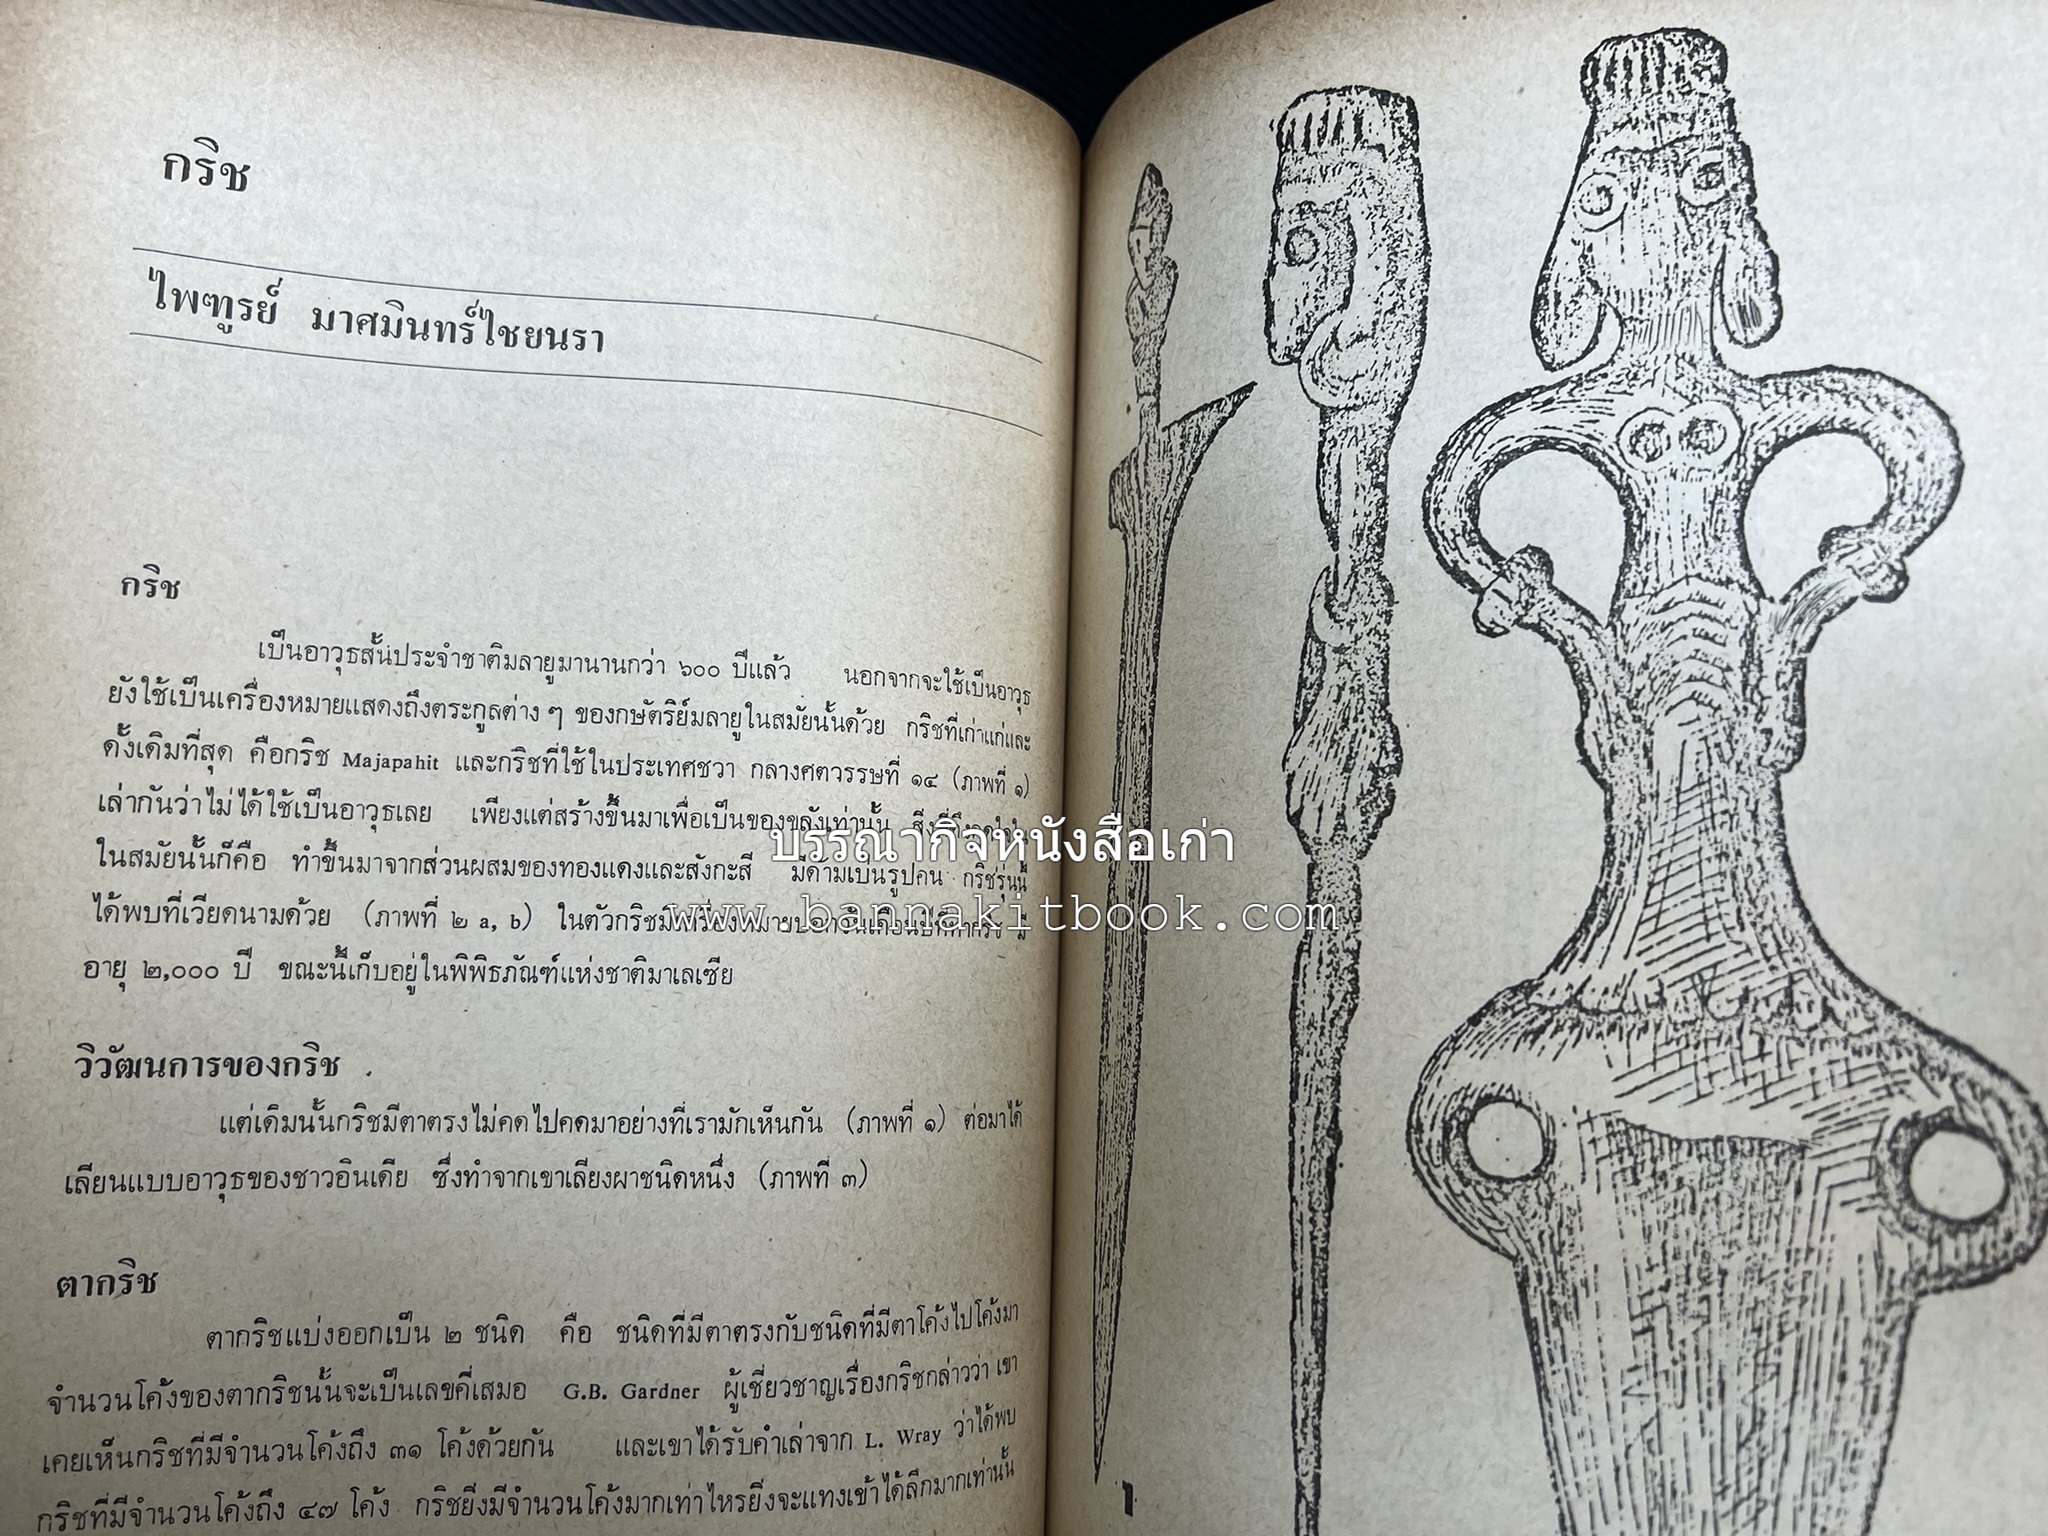 กริช
ไพฑูรย์ มาศมินทร์ไชยนรา
กริช
เป็นอาวุธสั้นประจำชาติมลายูมานานกว่า ๖๐๐ ปีแล้ว นอกจากจะใช้เป็นอาวุธ
ยังใช้เป็นเครื่องหมายแสดงถึงตระกูลต่าง ๆ ของกษัตริย์มลายูในสมัยนั้นด้วย กริชที่เก่าแก่และ
ดั้งเดิมที่สุด คือกริช Majapahit และกริชที่ใช้ในประเทศชวา กลางศตวรรษที่ ๑๔ (ภาพที่ ๑)
เล่ากันว่าไม่ได้ใช้เป็นอาวุธเลย เพียงแต่สร้างขึ้นมาเพื่อเป็นของขลังเท่านั้น
ในสมัยนั้นก็คือ ทำขึ้นมาจากส่วนผสมของทองแดงและสังกะสี มีด้ามเป็นรูปคน กริชรุ่นนี้
ได้พบที่เวียดนามด้วย (ภาพที่ ๒ a, b) ในตัวกริชมีเครื่องหมาย มี
อายุ ๒,๐๐๐ ปี ขณะนี้เก็บอยู่ในพิพิธภัณฑ์แห่งชาติมาเลเซีย
วิวัฒนการของกริช
แต่เดิมนั้นกริชมีตาตรงไม่คดไปคดมาอย่างที่เรามักเห็นกัน (ภาพที่ ๑) ต่อมาได้
เลียนแบบอาวุธของชาวอินเดีย ซึ่งทำจากเขาเลียงผาชนิดหนึ่ง (ภาพที่ ๓)
ตากริช
ตากริชแบ่งออกเป็น ๒ ชนิด คือ ชนิดที่มีตาตรงกับชนิดที่มีตาโค้งไปโค้งมา
จำนวนโค้งของตากริชนั้นจะเป็นเลขคี่เสมอ G.B. Gardner ผู้เชี่ยวชาญเรื่องกริชกล่าวว่า เขา
เคยเห็นกริชที่มีจำนวนโค้งถึง ๓๑ โค้งด้วยกัน และเขาได้รับคำเล่าจาก L. Wray ว่าได้พบ
กริชที่มีจำนวนโค้งถึง ๔๗ โค้ง กริชยิ่งมีจำนวนโค้งมากเท่าไหรยิ่งจะแทงเข้าได้ลึกมากเท่านั้น
1
บรรณากิจหนังสือเก่า
www.bannakitbook.com